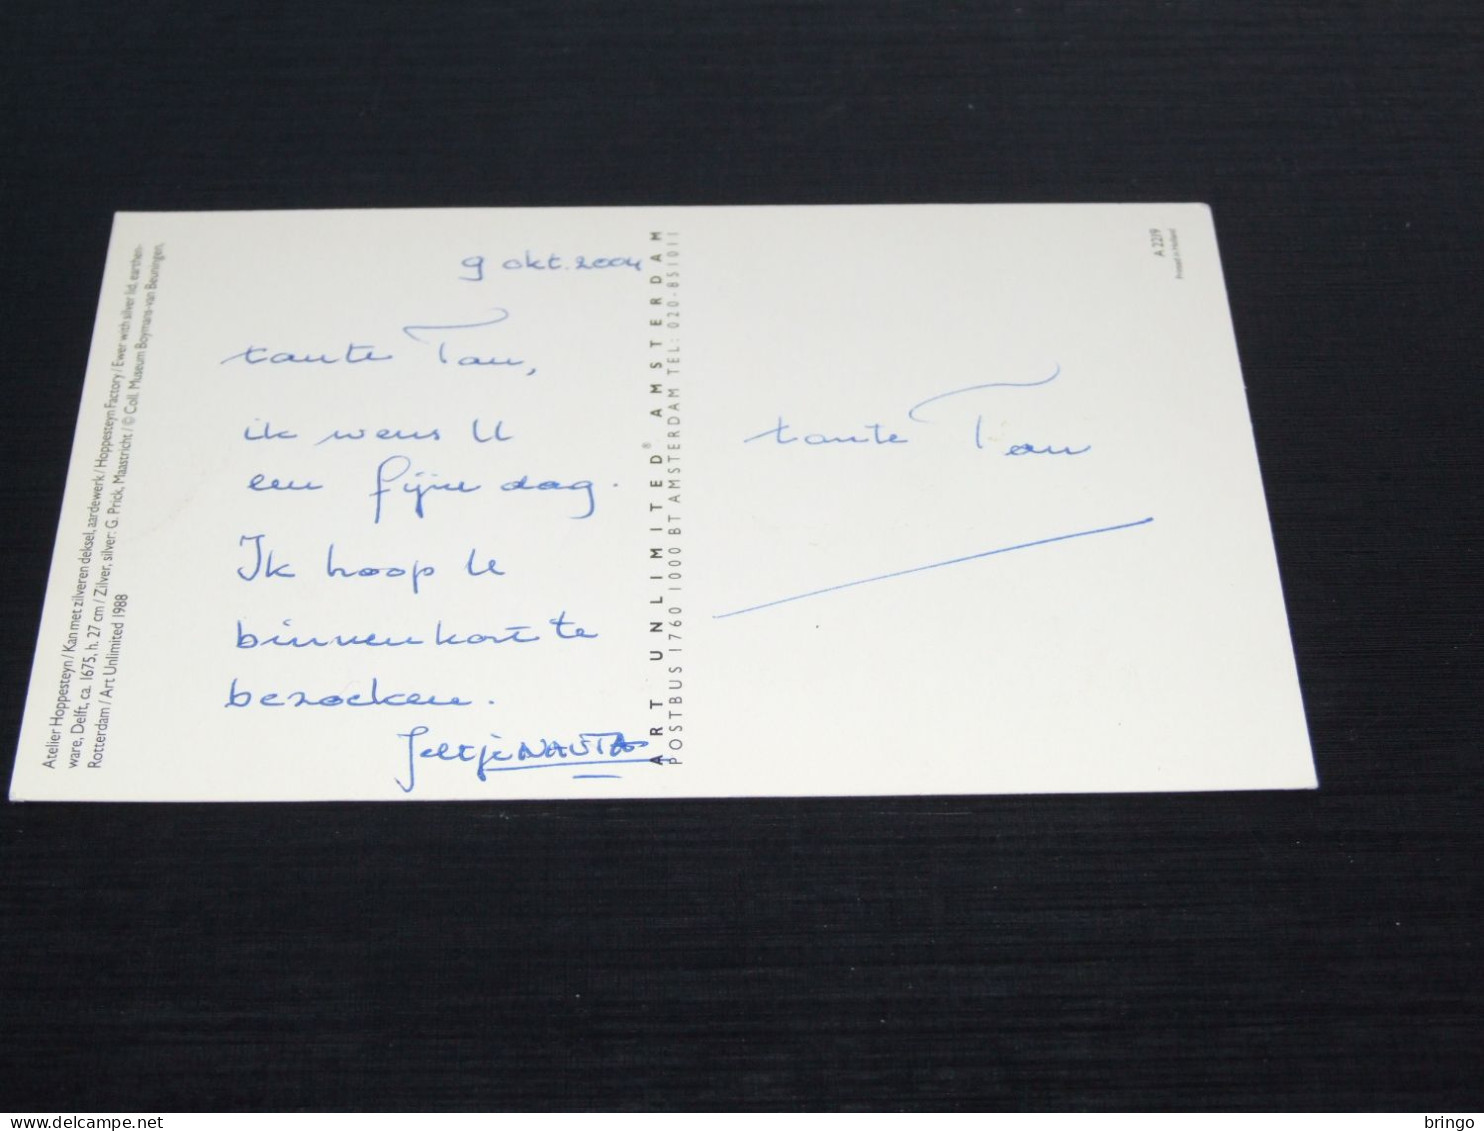 Atelier Hoppesteyn / Kan met zilveren deksel, aardewerk / Hoppesteyn Factory / Ewer with silver lid, earthen-
ware, Delft, ca. 1675, h. 27 cm / Zilver, silver: G. Prick, Maastricht / © Coll. Museum Boymans-van Beuningen,
Rotterdam / Art Unlimited 1988
9 okt. 2004
tante Tan,
ik wens U
een fijne dag.
Ik hoop U
binnenkort te
bezoeken.
Jeltje NAUTA
ART UNLIMITED® AMSTERDAM
POSTBUS 1760 1000 BT AMSTERDAM TEL: 020-851011
tante Tan
A 2219
Printed in Holland
delcampe.net
bringo